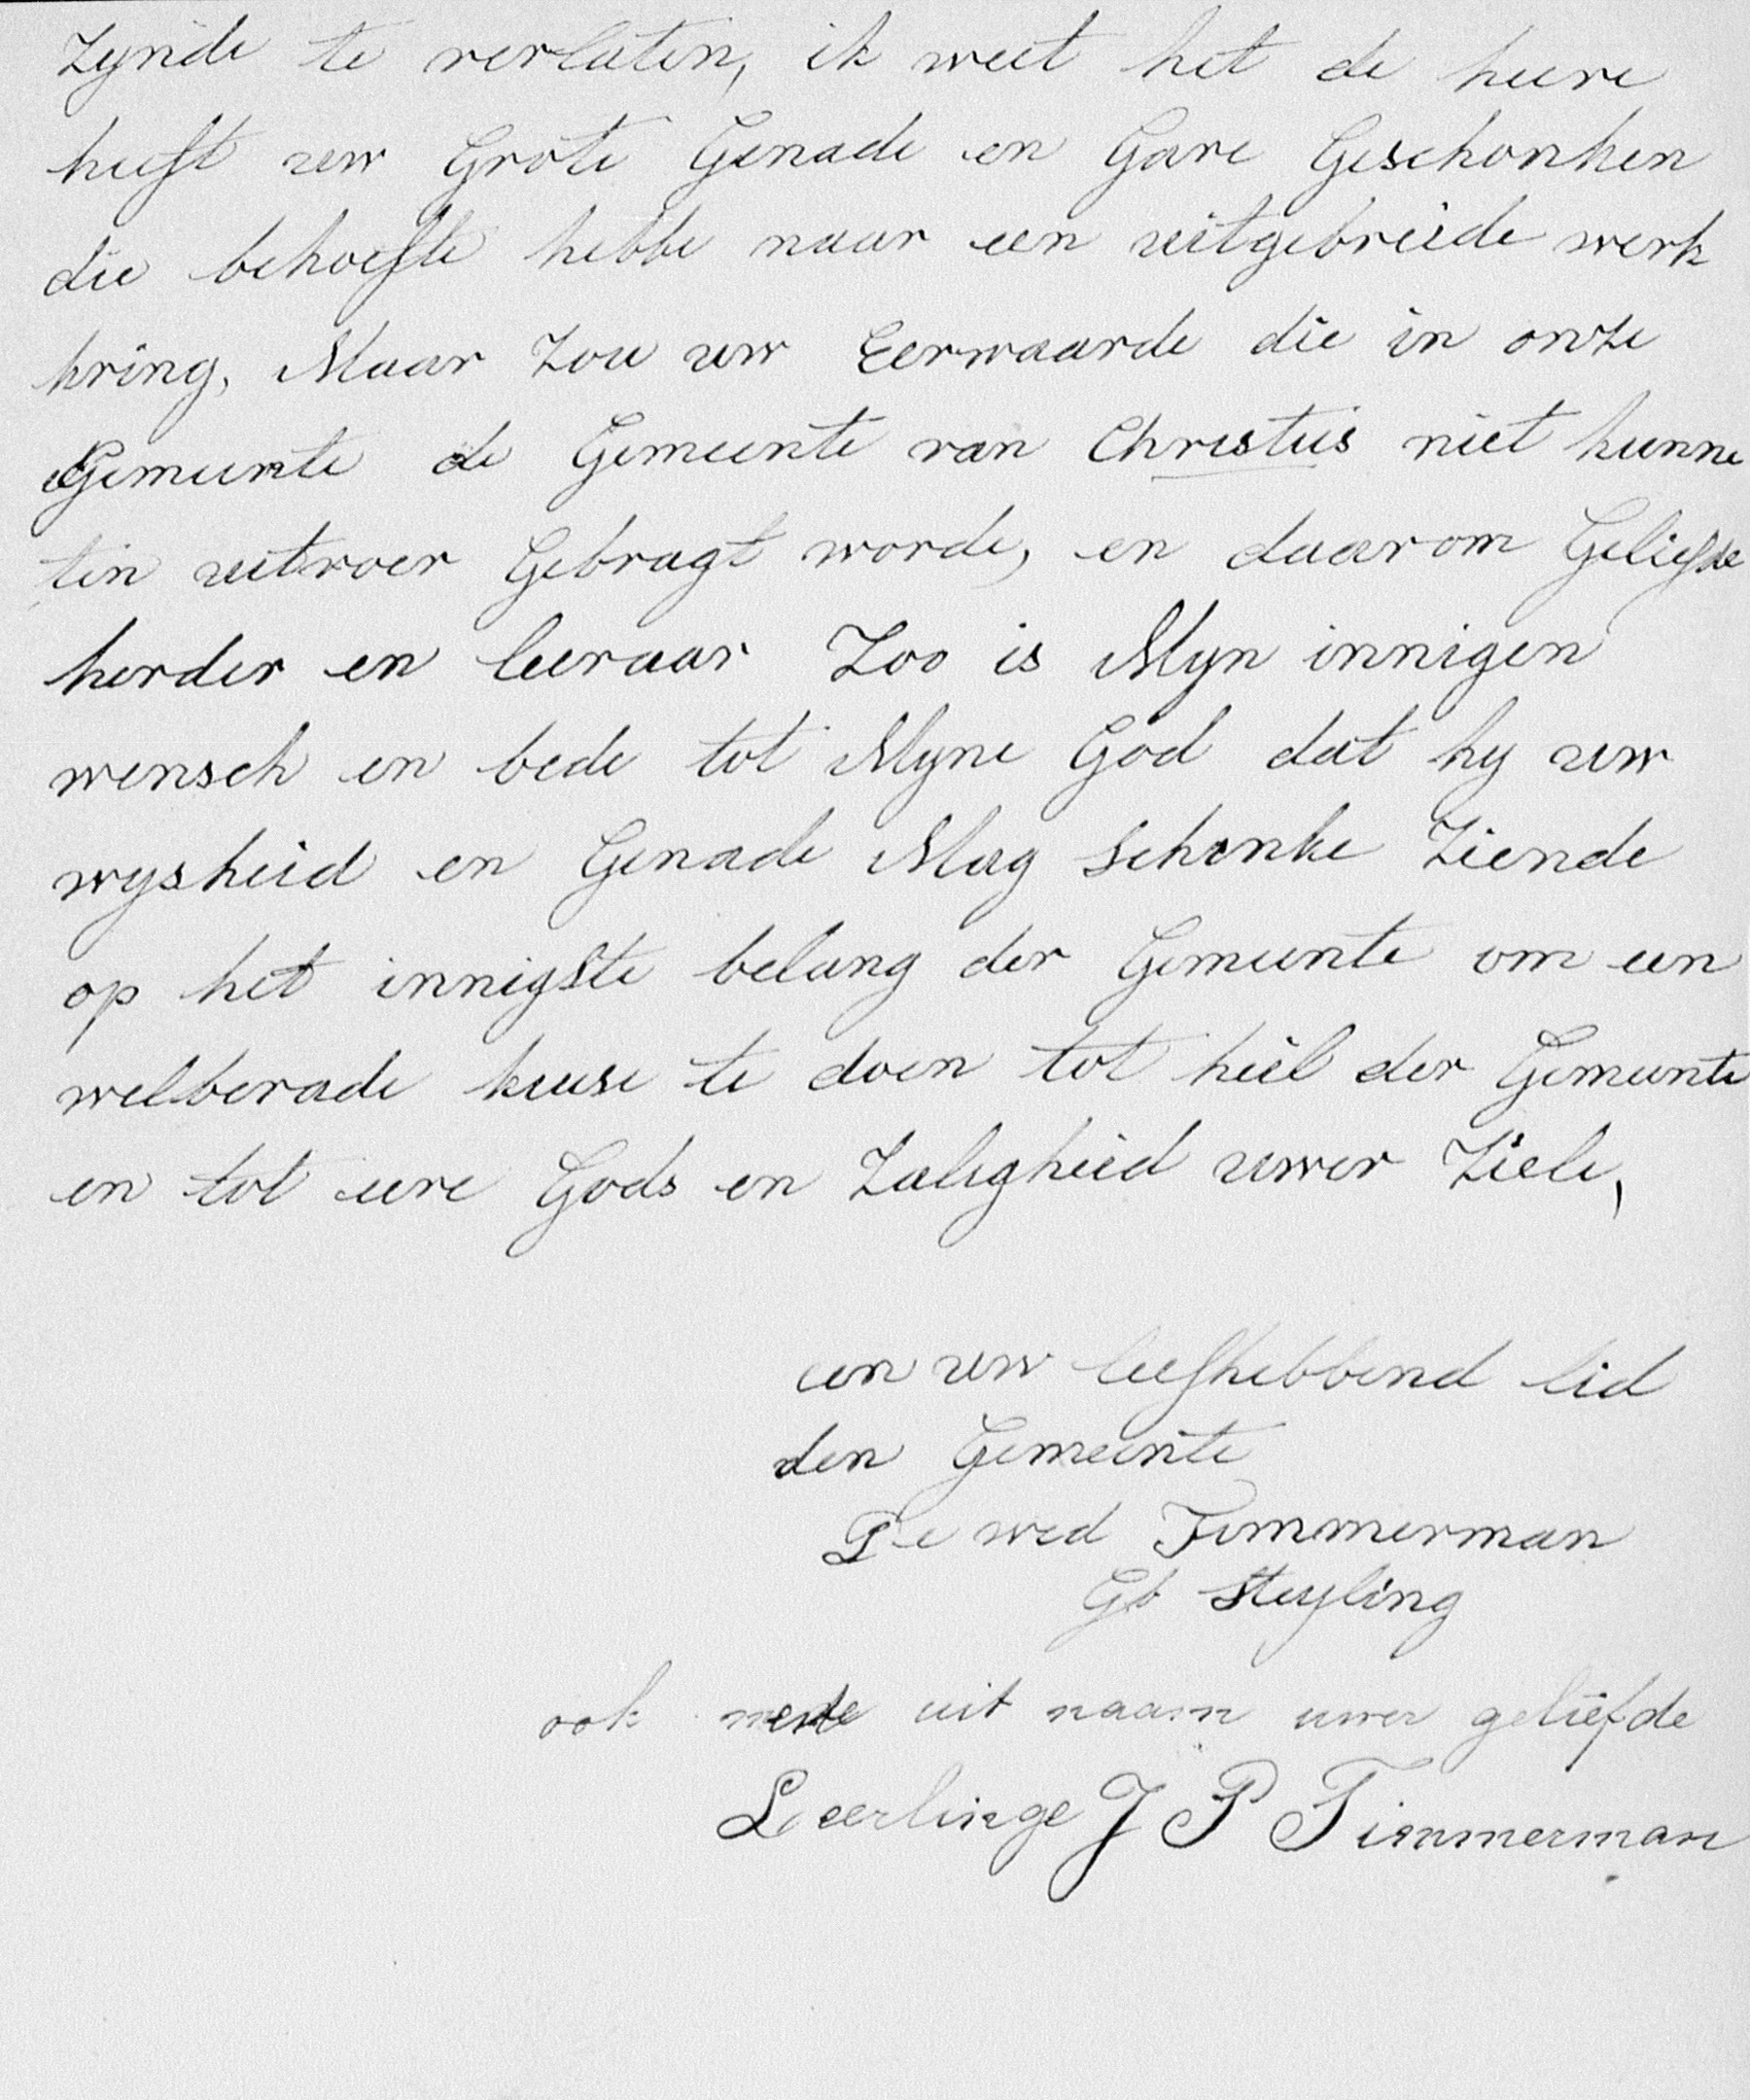 Zynde te verlaten, ik weet het de heere
heeft uw Grote Genade en Gave Geschonken
die behoefte hebbe naar een uitgebreide werk
kring, Maar Zou uw Eerwaarde die in onze
Gemeente de Gemeente van Christus niet kunne
ten uitvoer Gebragt worde, en daarom Geliefde
herder en leeraar Zoo is Myn innigen
wensch en bede tot Myne God dat hy uw
wysheid en Genade Mag Schenke Ziende
op het innigste belang der Gemeente om een
welberade keuse te doen tot heil der Gemeente
en tot eere Gods en Zaligheid uwer Ziele,
een uw leefhebbend lid
den Gemeente
De wed Timmerman
Gb Steyling
ook mede uit naam uwer geliefde
Leerlinge J P Timmerman